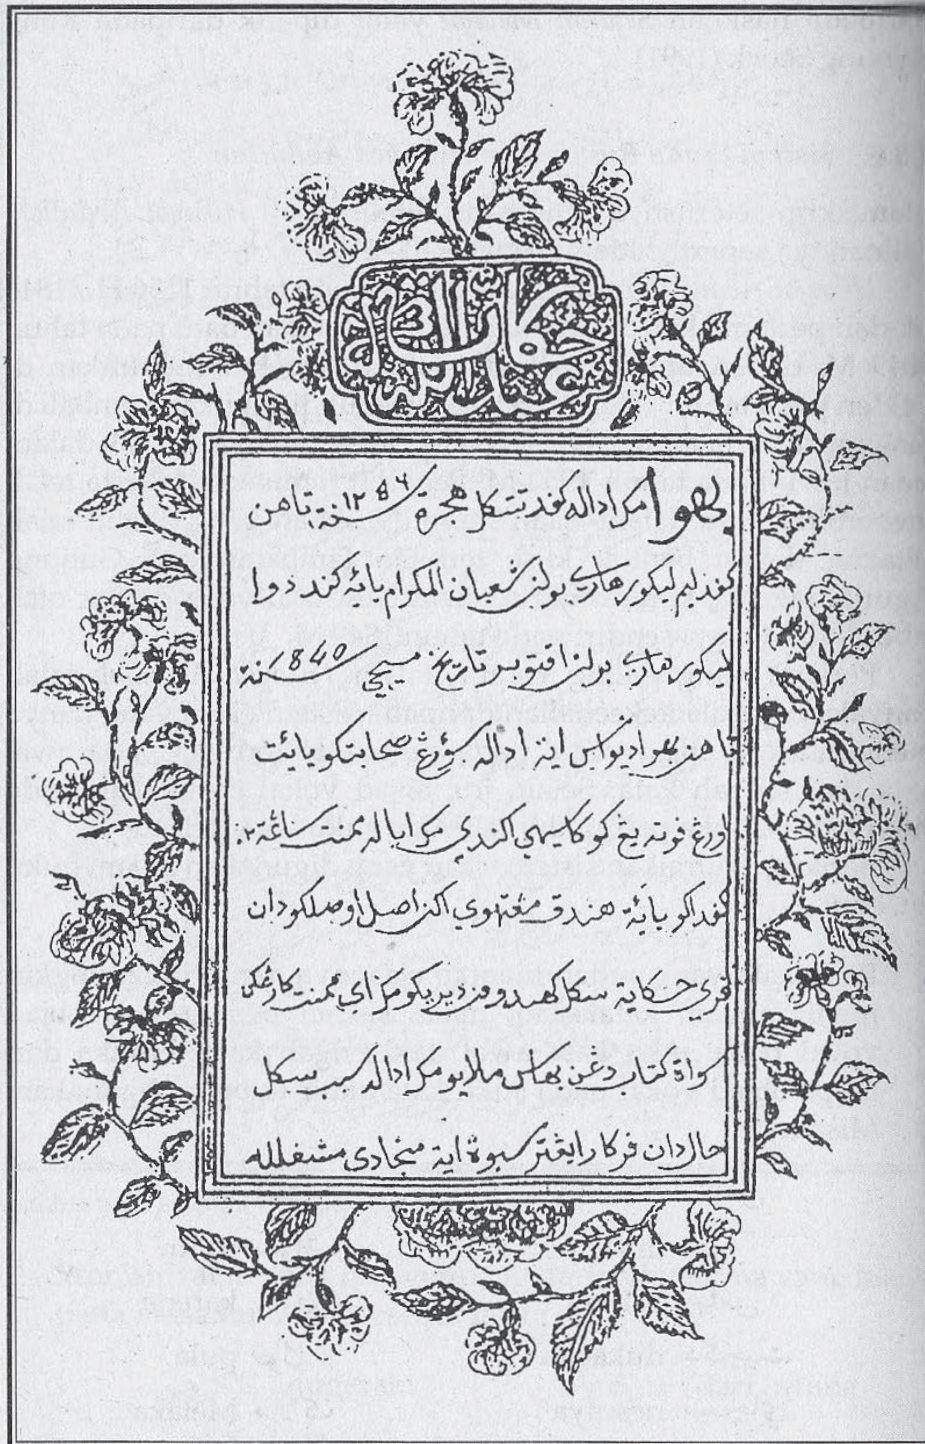 حكاية عبدالله
بهوا مک اداله کفد تتکل هجرة سنة ١٢٥٦ تاهن
کفد ليم ليکور هاري بولن شعبان المکرام يائت کفد دوا
ليکور هاري بولن اقتوبر تاريخ مسيحي سنة 1840
تاهن بهوا ديواکس اين اداله سؤرڠ صحابتکو يائت
اورڠ فوته يڠ کو کاسيهي اکندي مک اياله ممنت ساڠة٢
کفداکو يائة هندق مڠتهوي اکن اصل اوصلکو دان
فري حکاية سکل کهيدوفن ديريکو مک اي ممنت کارڠکن
سواة کتاب دڠن بهاس ملايو مک اداله سبب سکل
حال دان فرکارا يڠترسبوة ايت منجادي مشغلله